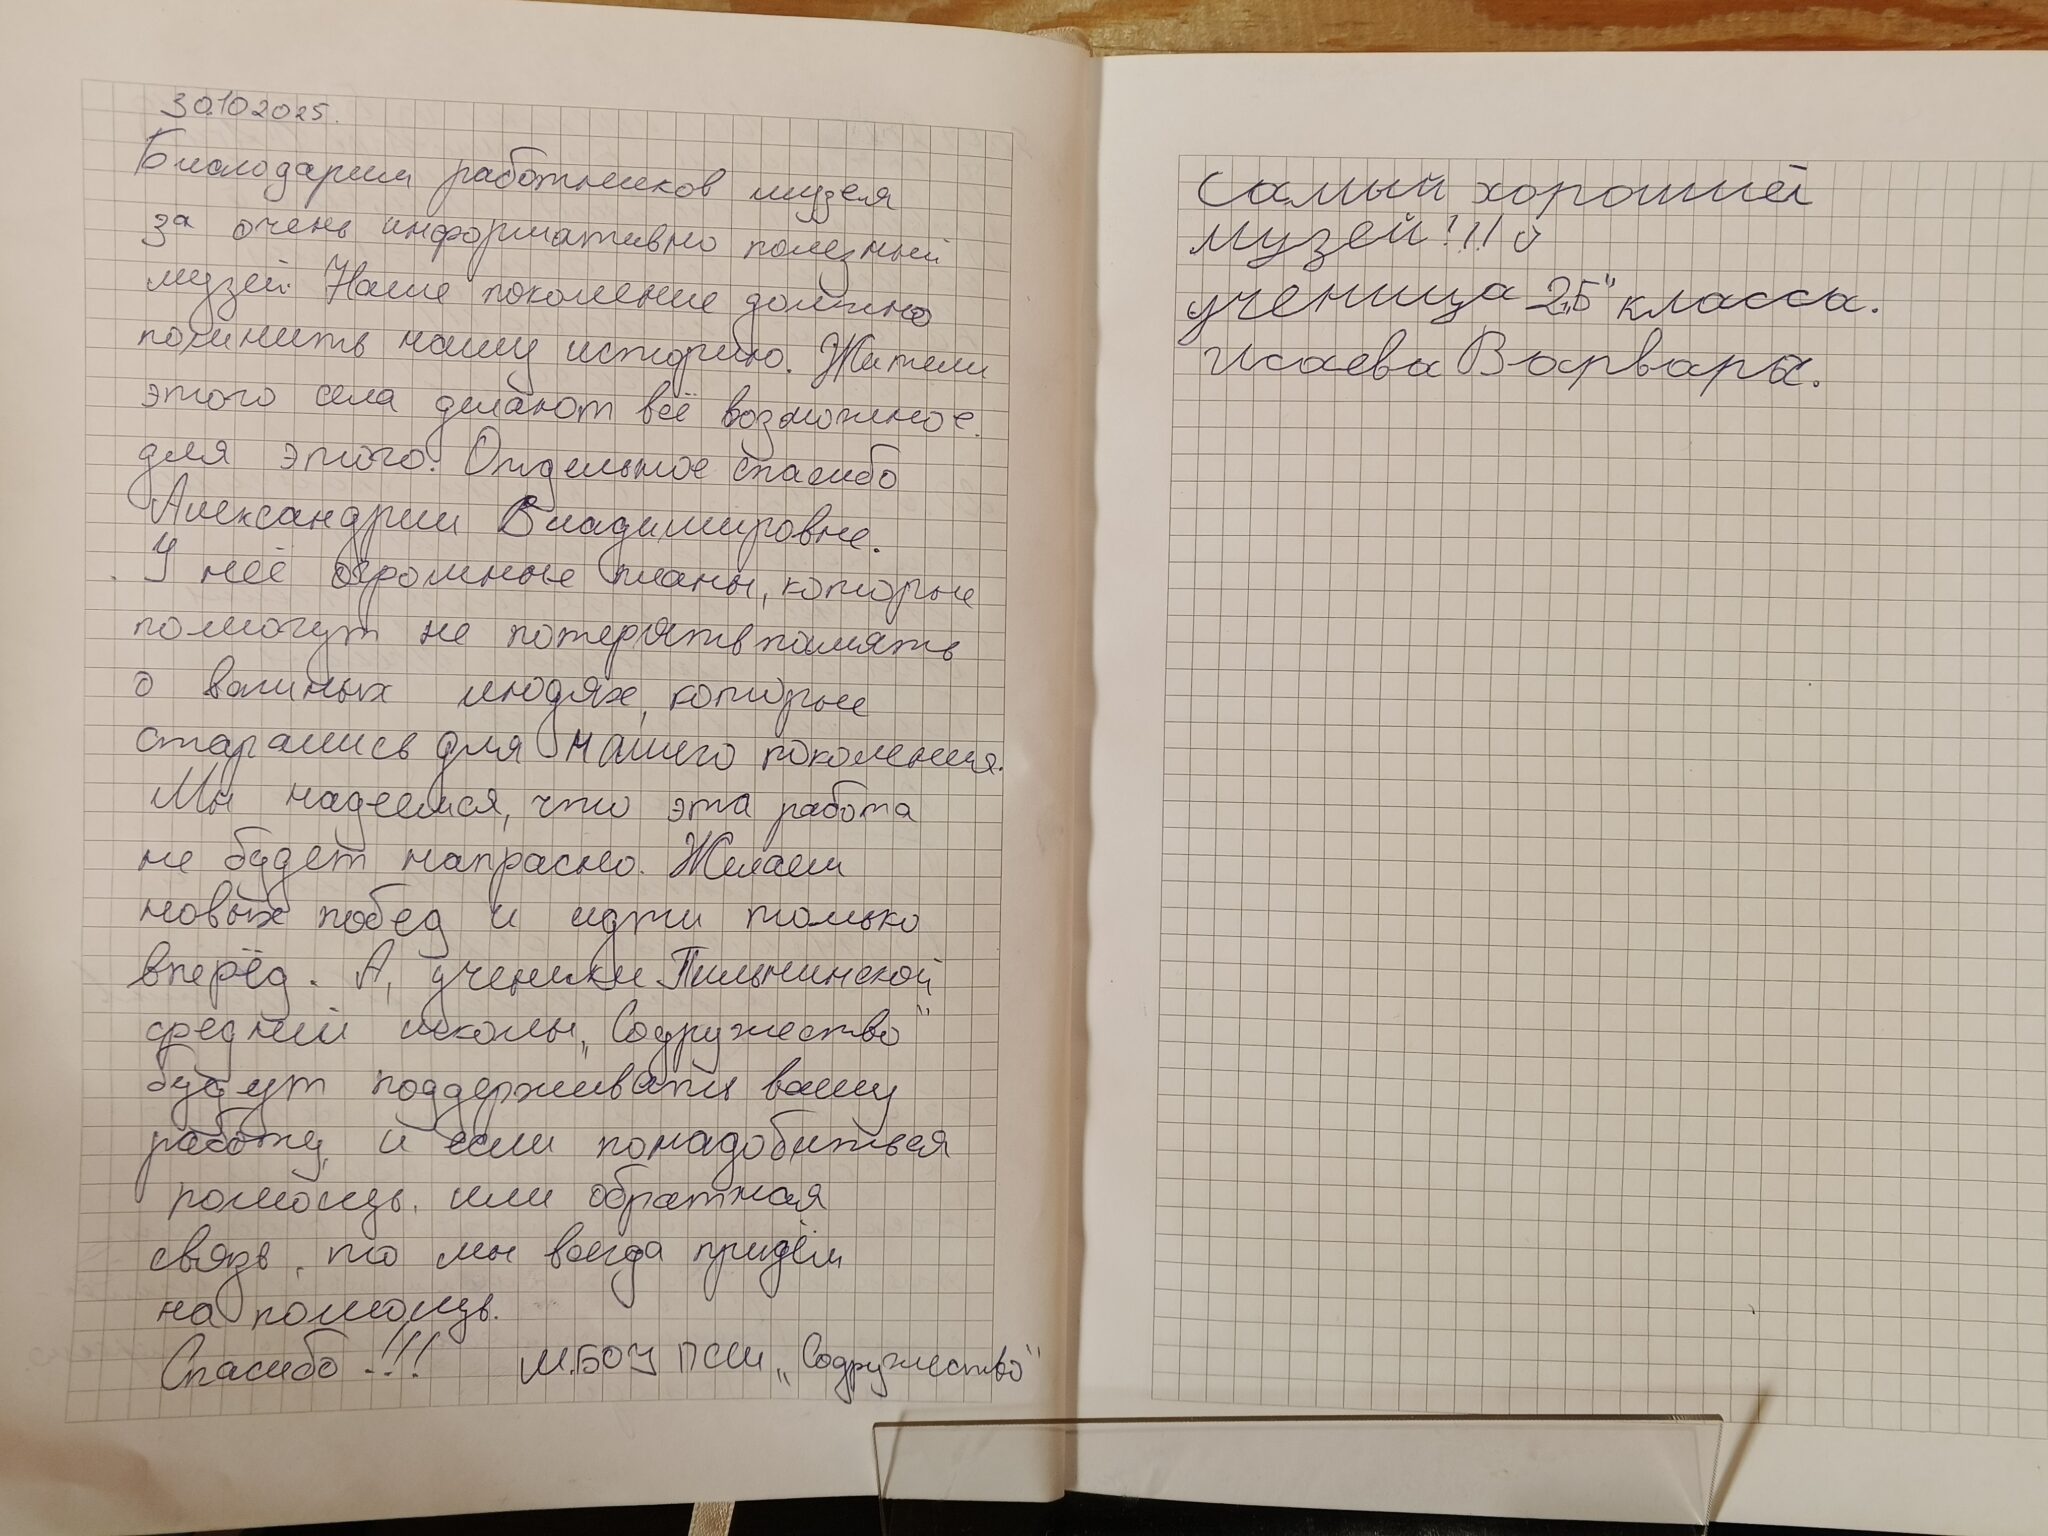 30.10.2025.
Благодарим работников музея
за очень информативно полезный
музей. Наше поколение должно
помнить нашу историю. Жители
этого села делают всё возможное
для этого. Отдельное спасибо
Александрии Владимировне.
У неё огромные планы, которые
помогут не потерять память
о важных людях, которые
старались для нашего поколения.
Мы надеемся, что эта работа
не будет напрасно. Желаем
новых побед и идти только
вперёд. А, ученики Пильнинской
средний школы „Содружество"
будут поддерживать вашу
работу, и если понадобиться
помощь, или обратная
связь, то мы всегда придём
на помощь.
Спасибо!!! М.БОУ ПСШ „Содружество"
Самый хороший
музей!!!
ученица 2„Б" класса.
Исаева Варвара.